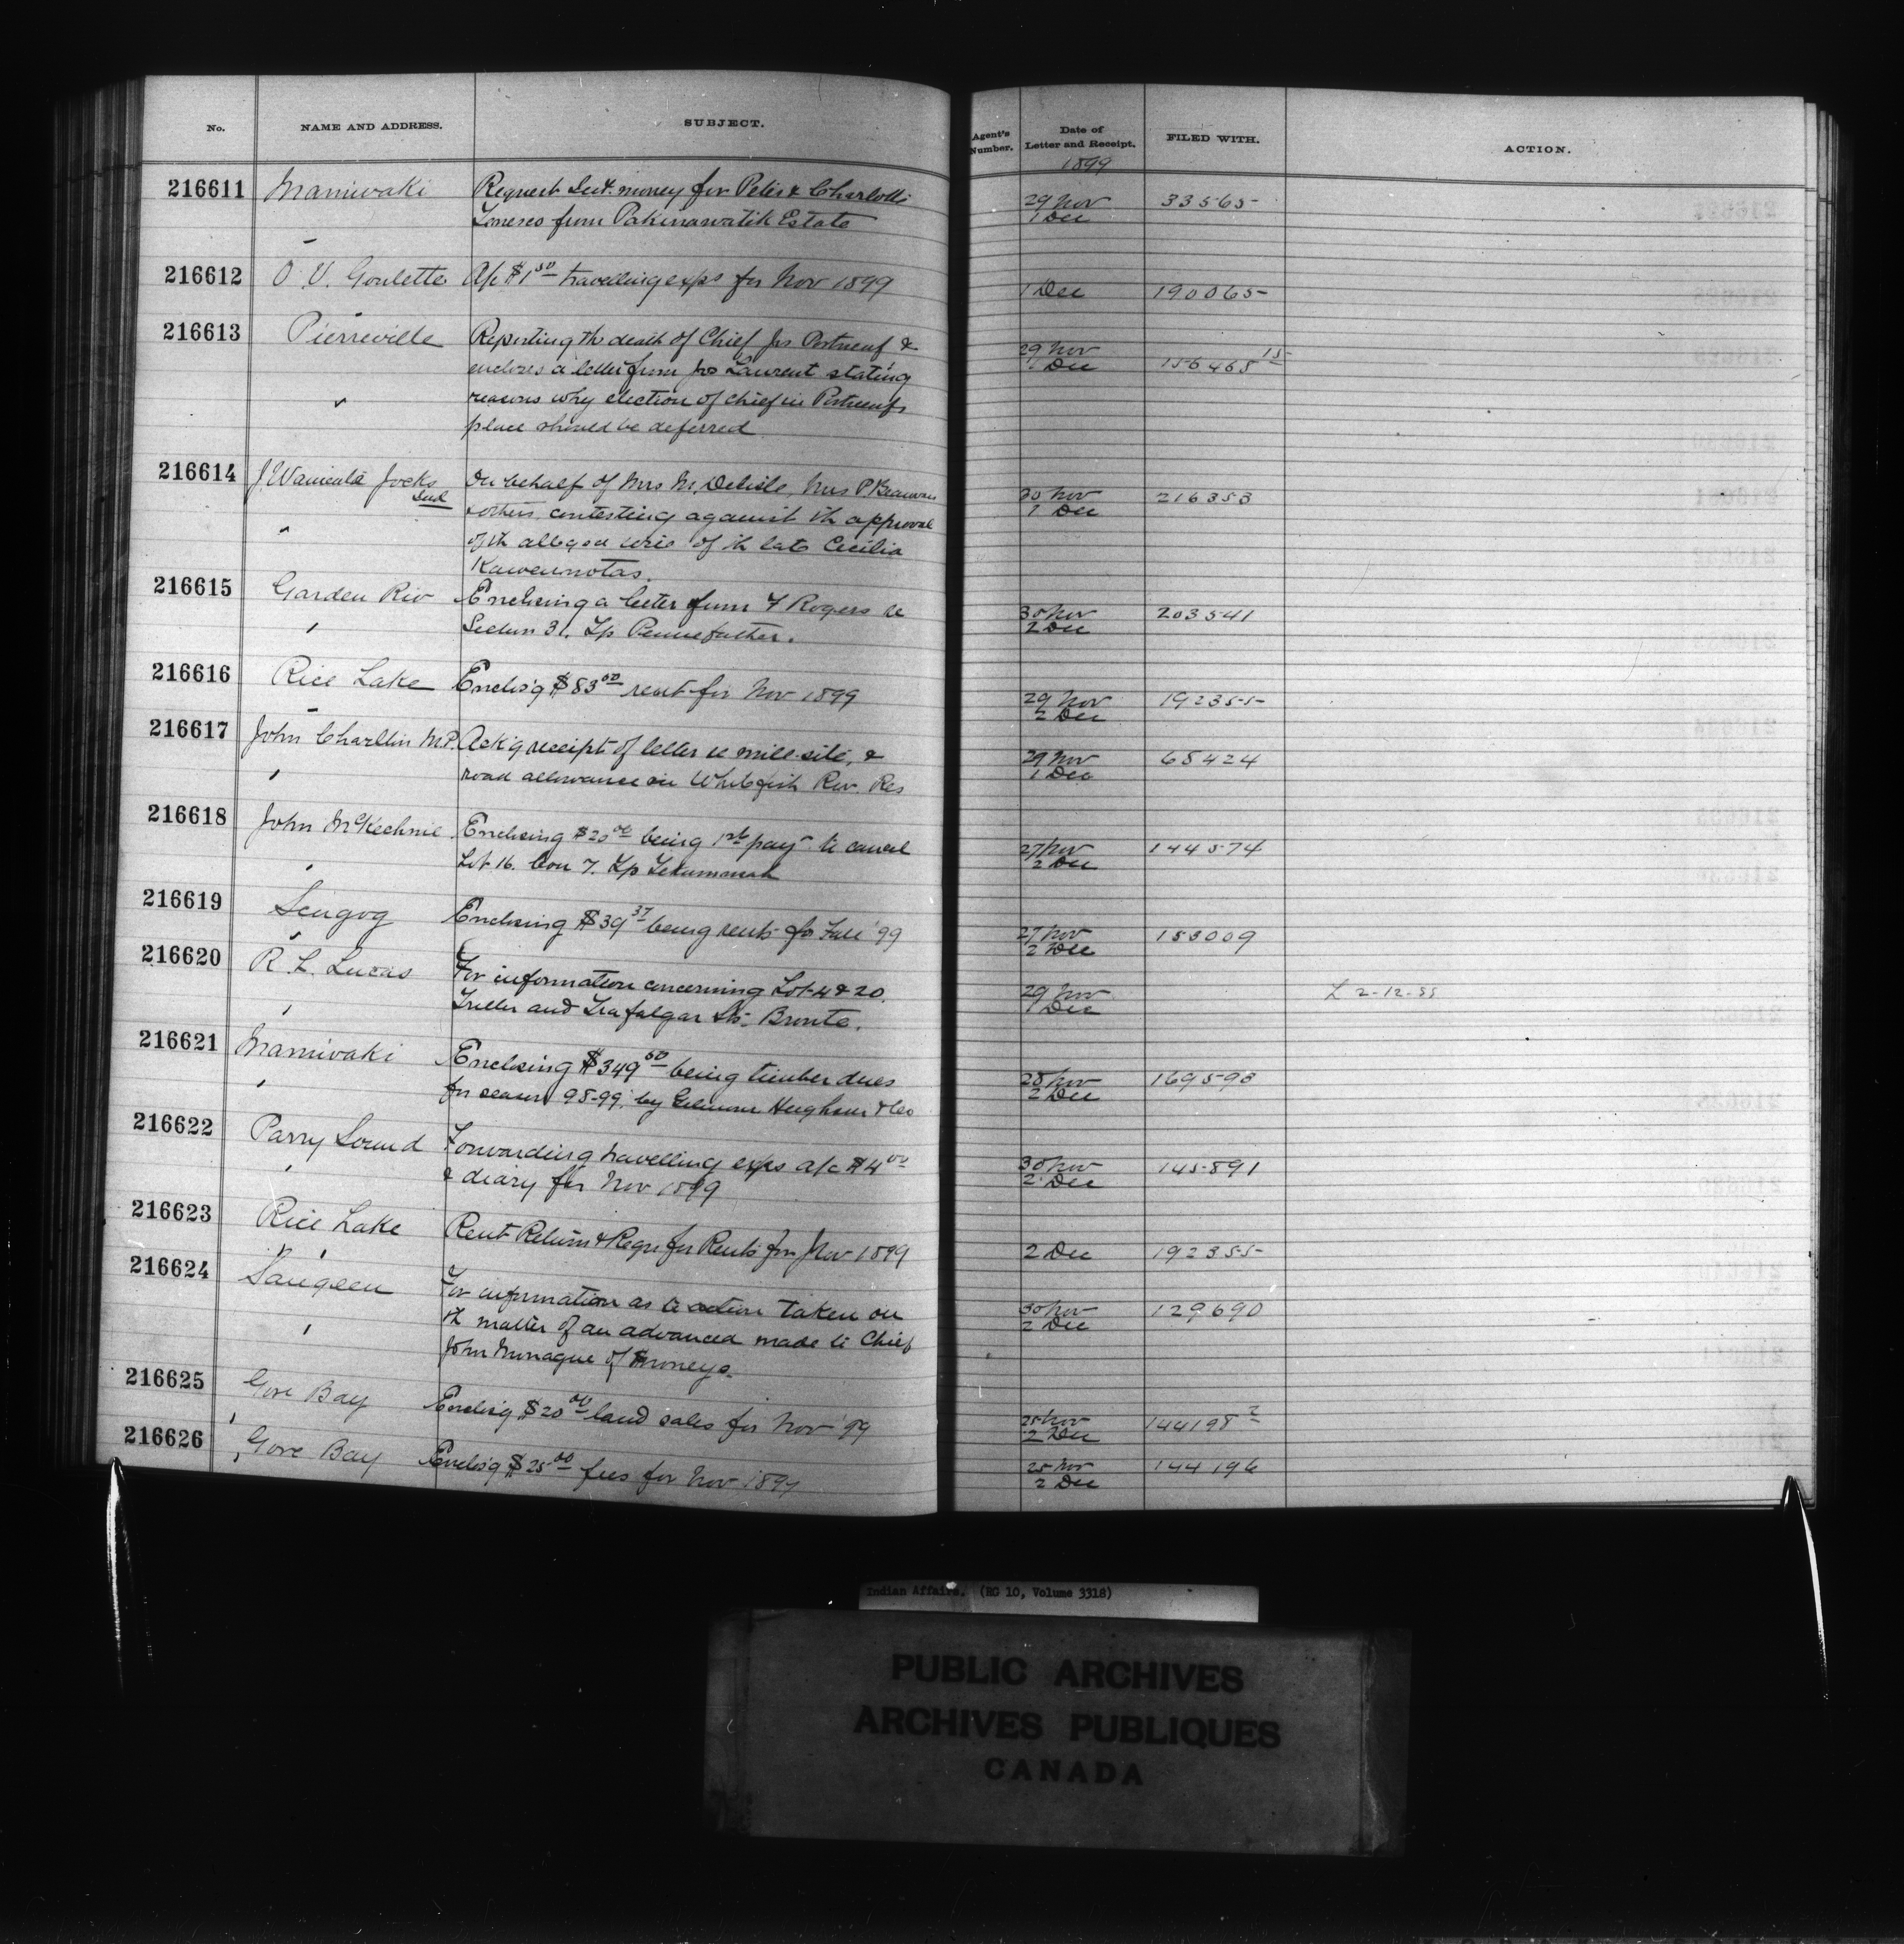 No. NAME AND ADDRESS. SUBJECT. Agent's Number. Date of Letter and Receipt. FILED WITH. ACTION.
1899
216611 Maniwaki Request Int. money for Peter & Charlotte 29 Nov 33565
Tenesco from Pakinawatik Estate 1 Dec
216612 O. V. Goulette A/c $1 50 travelling exps for Nov 1899 1 Dec 190065
216613 Pierreville Reporting th death of Chief Jos Portneuf & 29 Nov 156468 15
encloses a letter from Jos Laurent stating 1 Dec
" reasons why election of chief in Portneufs
place should be deferred
216614 J. Wanienta Jocks On behalf of Mrs M. Delisle, Mrs P Beauvais 30 Nov 216353
Ind & others, contesting against th approval 1 Dec
" of th alleged will of th late Cecilia
Kawennotas.
216615 Garden Riv Enclosing a letter from F Rogers re 30 Nov 203541
" Section 31. Tp Pennefather. 2 Dec
216616 Rice Lake Enclos'g $83 00 rent for Nov 1899 29 Nov 192355
2 Dec
216617 John Charlton M.P. Ack'g receipt of letter re mill-site, & 29 Nov 68424
" road allowance in Whitefish Riv. Res 1 Dec
216618 John McKechnie Enclosing $20 00 being 1st pay't to cancel 27 Nov 144574
" Lot 16. Con 7. Tp Tehkummah 2 Dec
216619 Scugog Enclosing $39 37 being rents for Fall '99 27 Nov 153009
2 Dec
216620 R. L. Lucas For information concerning Lot 4 & 20. 29 Nov L 2-12-99
" Triller and Trafalgar Sts. Bronte. 1 Dec
216621 Maniwaki Enclosing $349 50 being timber dues 28 Nov 169593
" for season 98-99. by Gilmour Hughson & Co 2 Dec
216622 Parry Sound Forwarding travelling exps a/c $4 00 30 Nov 145891
" & diary for Nov 1899 2 Dec
216623 Rice Lake Rent Return & Reqn for Rents for Nov 1899 2 Dec 192355
216624 Saugeen For information as to action taken on 30 Nov 129690
th matter of an advanced made to Chief 2 Dec
" John Nonague of moneys.
216625 Gore Bay Enclos'g $20 00 land sales for Nov '99 28 Nov 144198 2
2 Dec
216626 Gore Bay Enclos'g $25 00 fees for Nov 1899 28 Nov 144196
2 Dec
Indian Affairs. (RG 10, Volume 3318)
PUBLIC ARCHIVES
ARCHIVES PUBLIQUES
CANADA